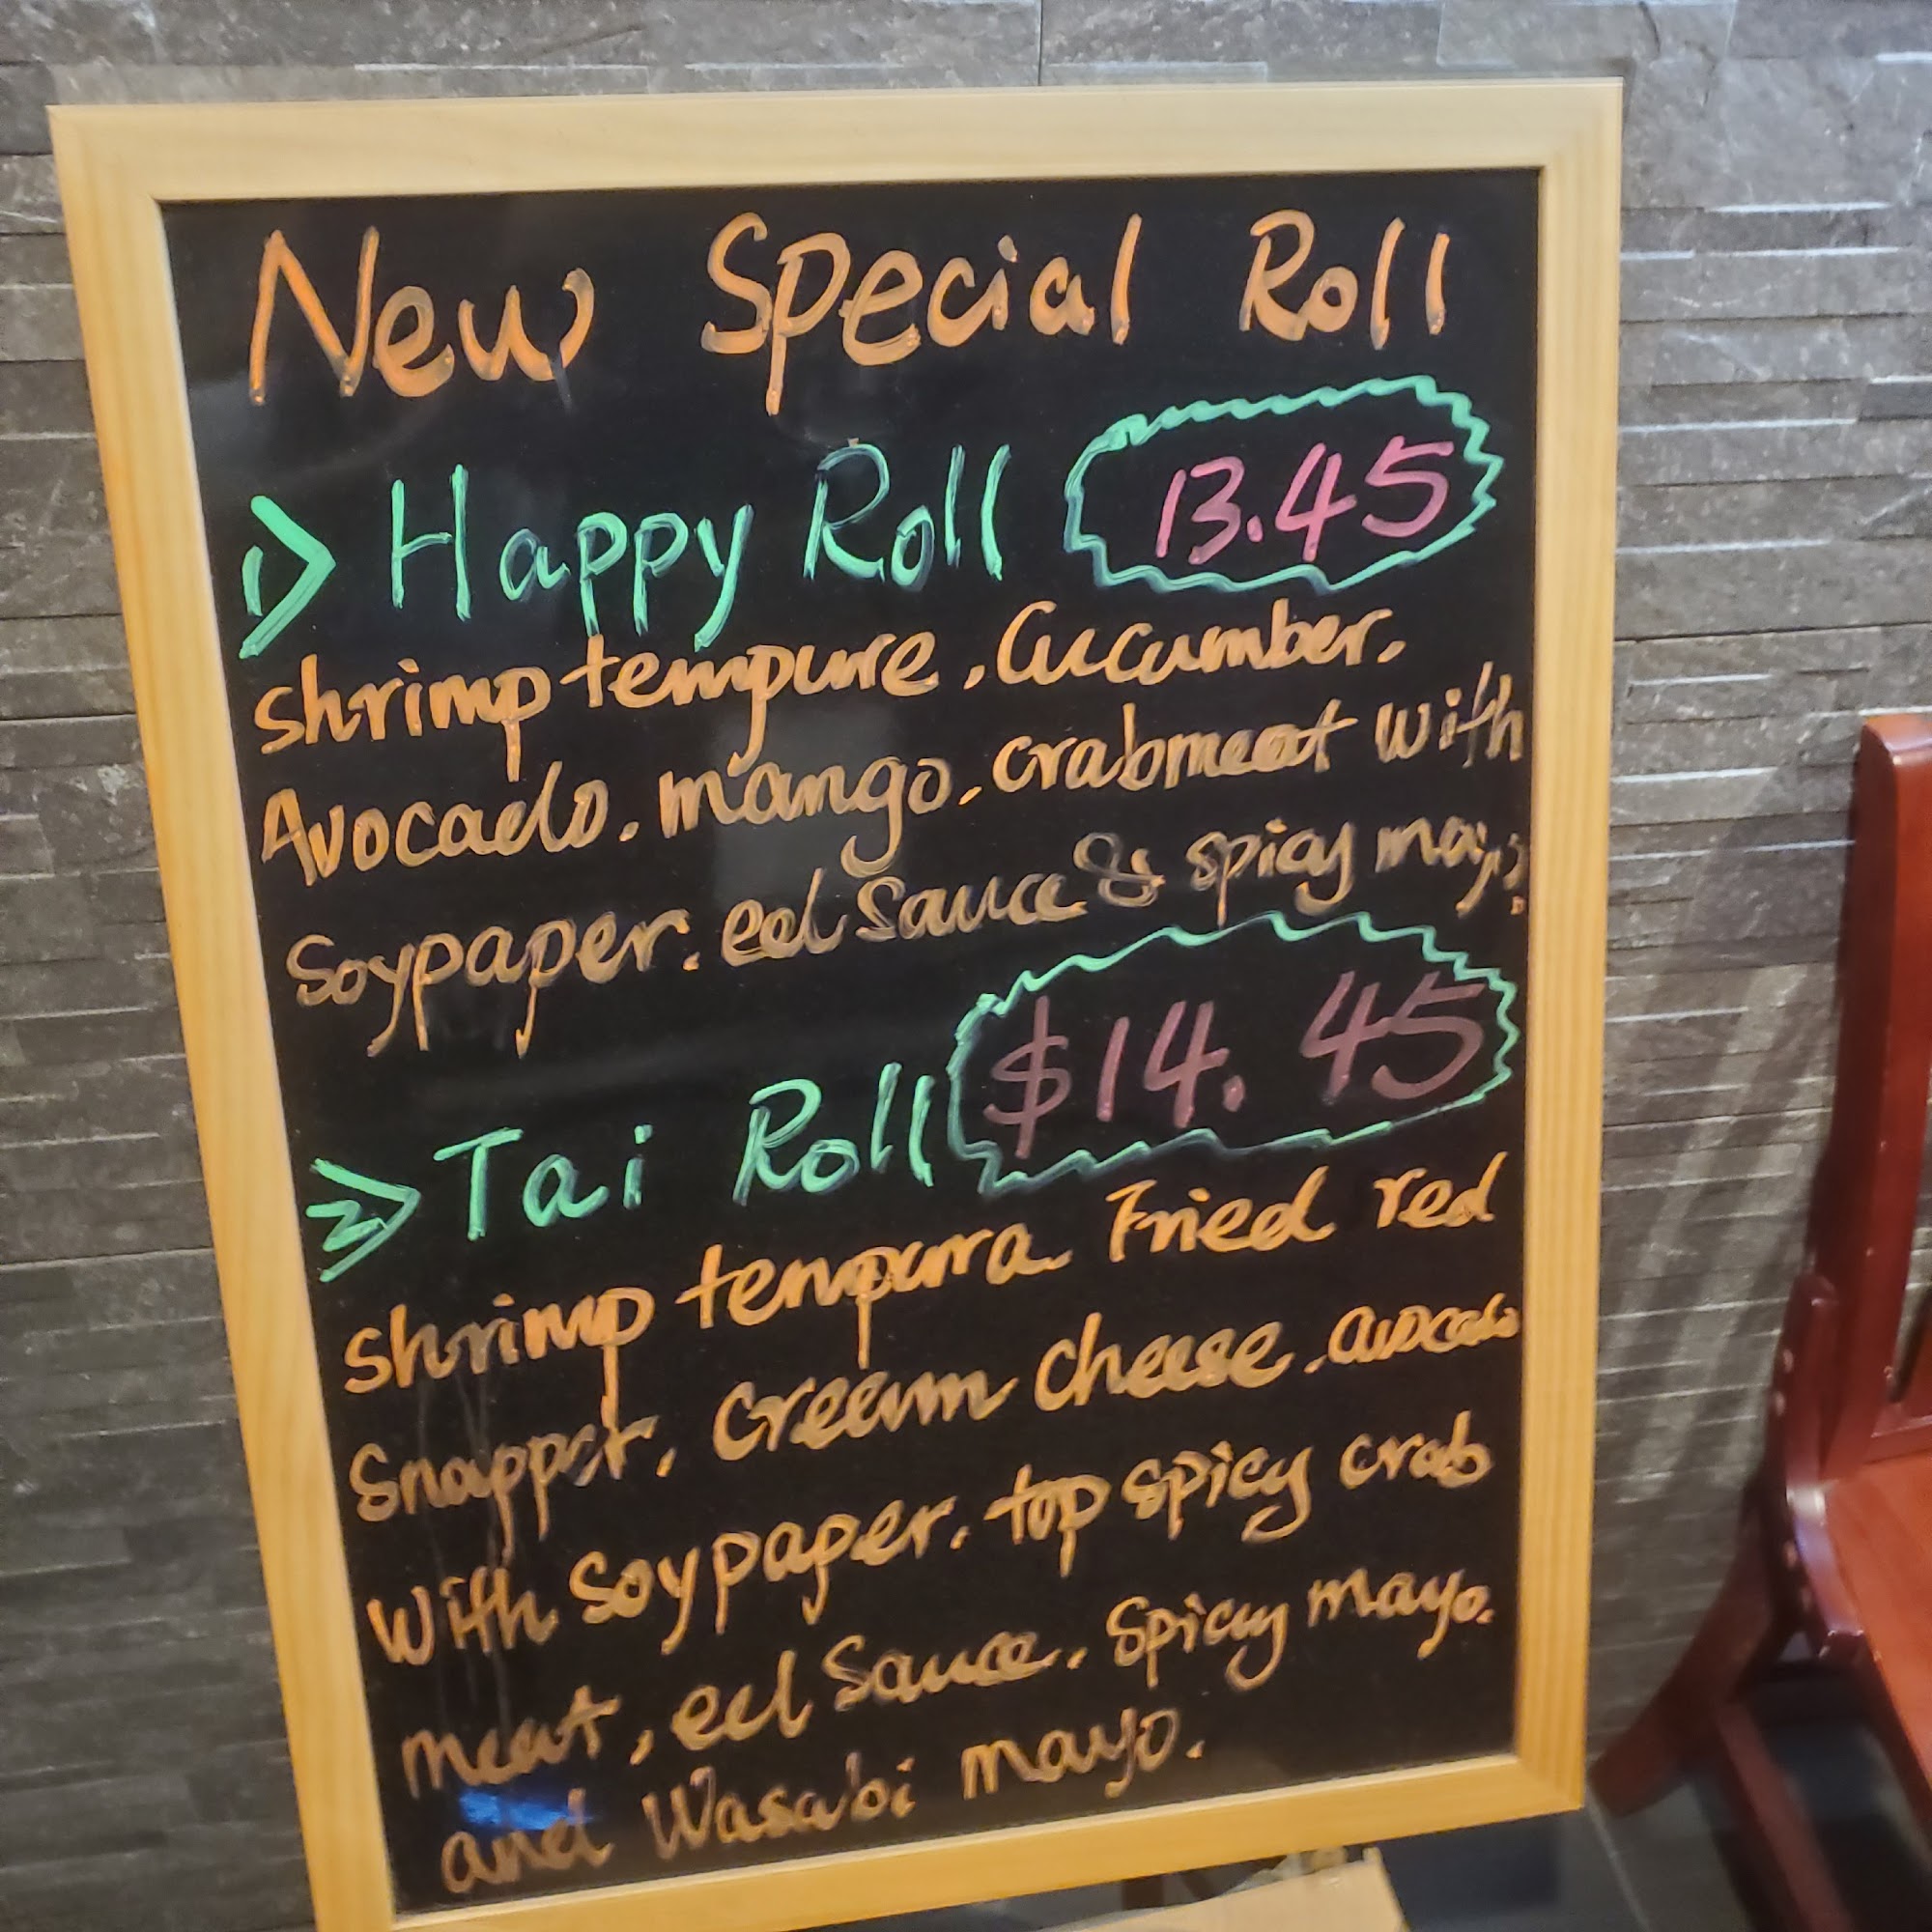 New Special Roll
1> Happy Roll 13.45
shrimp tempure, Cucumber,
Avocado. mango. crabmeat with
Soypaper. eel Sauce & spicy mayo.
2> Tai Roll $14.45
shrimp tempura Fried red
Snapper, cream cheese. avocado
with soypaper. top spicy crab
meat, eel Sauce. Spicy mayo.
and Wasabi mayo.